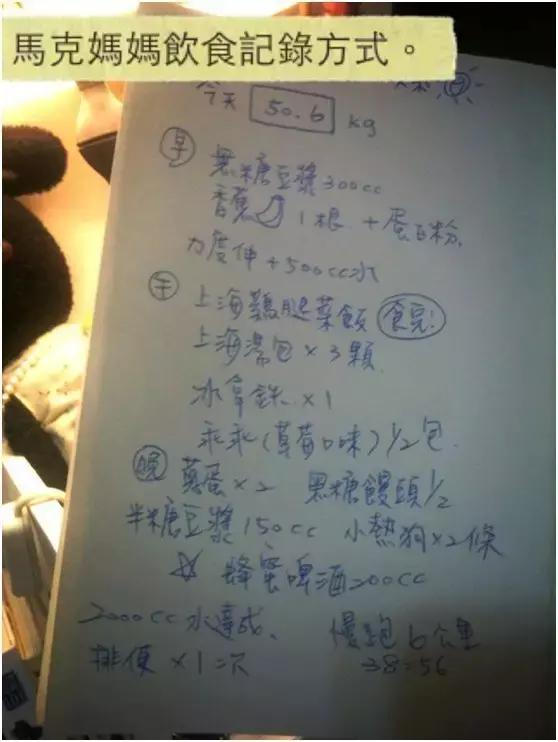 馬克媽媽飲食記錄方式。
今天 50.6 kg
早 無糖豆漿300cc
香蕉 1根 + 蛋白粉
力度伸+500cc水
午 上海鷄腿菜飯 食完!
上海湯包×3顆
冰拿鉄×1
乖乖(草莓口味)1/2包
晚 蛋×2 黑糖饅頭1/2
半糖豆漿150cc 小熱狗×2條
☆ 蜂蜜啤酒200cc
2000cc水達成、 慢跑6公里
排便×1次 38:56